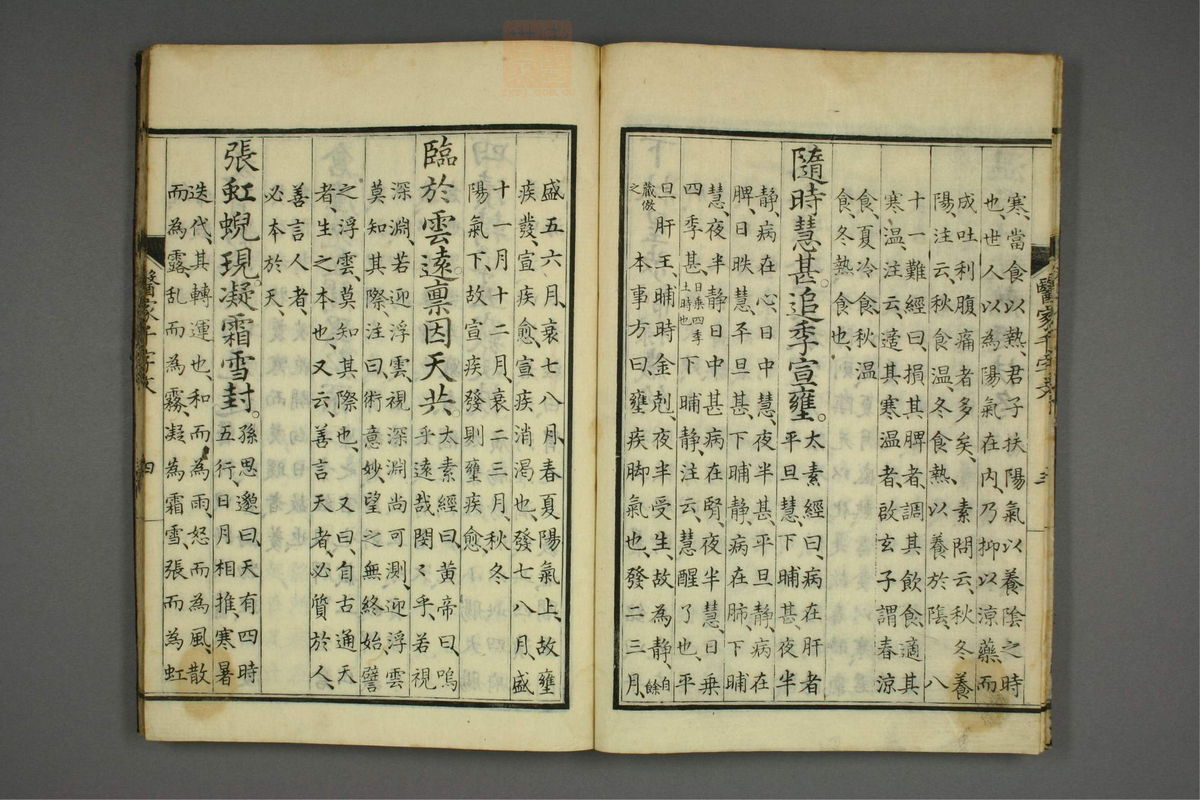 寒、當食以熱、君子扶陽氣以養陰之時
也、世人以為陽氣在內、乃抑以涼藥、而
成吐利腹痛者多矣、素問云、秋冬養
陽注云、秋食温、冬食熱、以養於陰、八
十一難經曰、損其脾者、調其飲食、適其
寒温、注云、適其寒温者、啟玄子謂春涼
食、夏冷食、秋温
食、冬熱食也、
隨時慧甚。追季宣壅。
太素經曰、病在肝者
平旦慧、下晡甚、夜半
静、病在心、日中慧、夜半甚、平旦静、病在
脾、日昳慧、平旦甚、下晡静、病在肺、下晡
慧、夜半静、日中甚、病在腎、夜半慧、日乗
四季甚、
日乗四季
土時也
下晡静、注云、慧醒了也、平
旦肝王、晡時金剋、夜半受生、故為静、
自餘
嚴倣
之
本事方曰、壅疾脚氣也、發二三月、
盛五六月、衰七八月、春夏陽氣上、故壅
疾發、宣疾愈、宣疾消渇也、發七八月、盛
十一月十二月、衰二三月、秋冬
陽氣下、故宣疾發則壅疾愈、
臨於雲遠。稟因天共。
太素經曰、黄帝曰、嗚
乎遠哉、閔〻乎、若視
深淵、若迎浮雲、視深淵尚可測、迎浮雲
莫知其際、注曰、術意妙、望之無終始、譬
之浮雲、莫知其際也、又曰、自古通天
者、生之本也、又云、善言天者、必質於人、
善言人者、
必本於天、
張虹蜺現。凝霜雪封。
孫思邈曰、天有四時
五行、日月相推、寒暑
迭代、其轉運也、和而為雨、怒而為風、散
而為露、乱而為霧、凝為霜雪、張而為虹
醫家千字文
三
醫家千字文
四